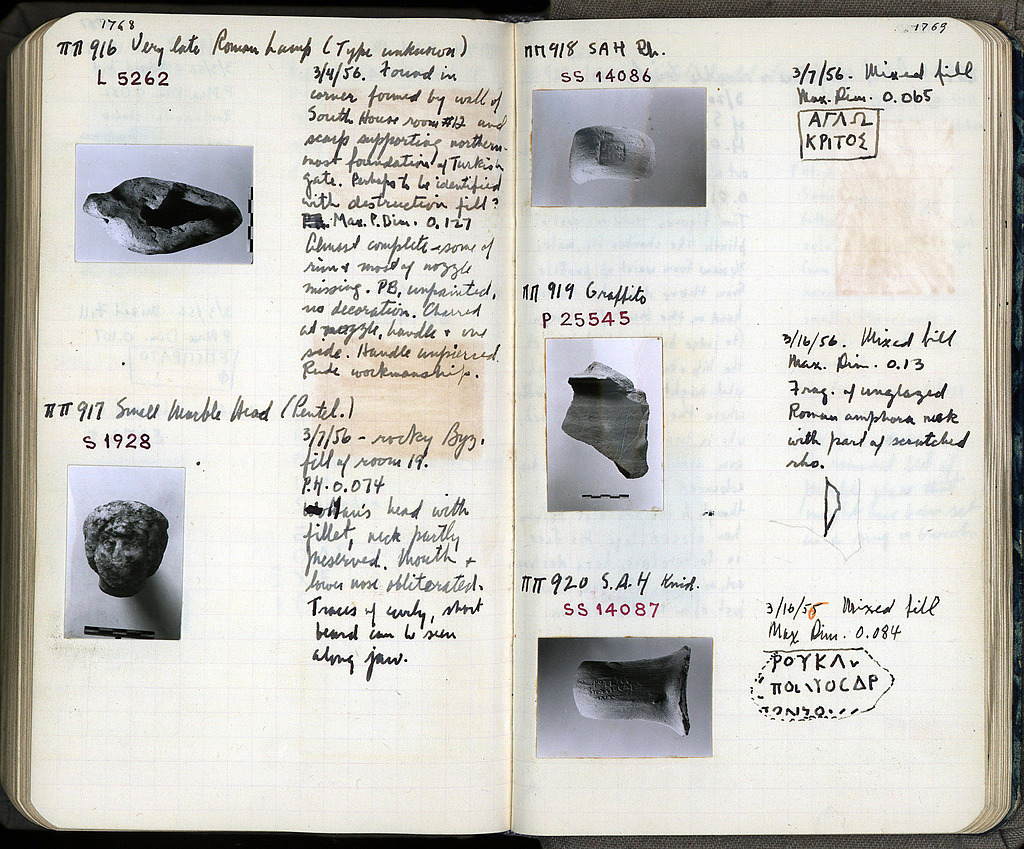 1768
ΠΠ 916 Very late Roman Lamp (Type unknown)
L 5262
3/4/56. Found in
corner formed by wall of
South House room #12 and
scarp supporting northern-
most foundation of Turkish
gate. Perhaps to be identified
with destruction fill?
Max. P. Dim. 0.127
Almost complete - some of
rim & most of nozzle
missing. PB, unpainted,
no decoration. Charred
at nozzle, handle & one
side. Handle unpierced.
Rude workmanship.
ΠΠ 917 Small Marble Head (Pentel.)
S 1928
3/7/56 - rocky Byz.
fill of room 19.
P.H. 0.074
Man's head with
fillet, neck partly
preserved. Mouth &
lower nose obliterated.
Traces of curly, short
beard can be seen
along jaw.
1769
ΠΠ 918 SAH Rh.
SS 14086
3/7/56. Mixed fill
Max. Dim. 0.065
ΑΓΛΩ
ΚΡΙΤΟΣ
ΠΠ 919 Graffito
P 25545
3/16/56. Mixed fill
Max. Dim. 0.13
Frag. of unglazed
Roman amphora neck
with part of scratched
rho.
ΠΠ 920 S.A.H Knid.
SS 14087
3/16/56 Mixed fill
Max Dim. 0.084
ΡΟΥΚΛ